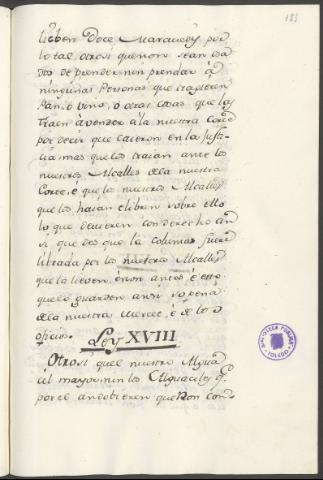 183
lieben doce Maravedis por
lo tal, otrosi que non sean osa
dos de prender nin prendar á
ningunas Personas que trageren
Pan, ó vino, ó otras cosas que las
traen á vender á la nuestra Corte
por decir que caieron en la Justi-
cia mas que los traian ante los
nuestros Alcalles de la nuestra
Corte, é que los nuestros Alcalles
que los haian é libren sobre ello
lo que devieren con derecho an
si que des que la columia fuere
librada por los nuestros Alcalles
que la lieven, é non antes é esto
que lo guarden ansi so pena
de la nuestra Merced, é de los
oficios.
Ley XVIII
Otrosi quel nuestro Alguaᶜ
cil mayor nin los Alguaciles q.ᵉ
por el andobieren que non con-
TOLEDO